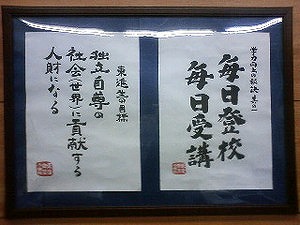 学力向上の秘訣 其の一
毎日登校
毎日受講
東進の目標
独立自尊の
社会(世界)に貢献する
人財になる